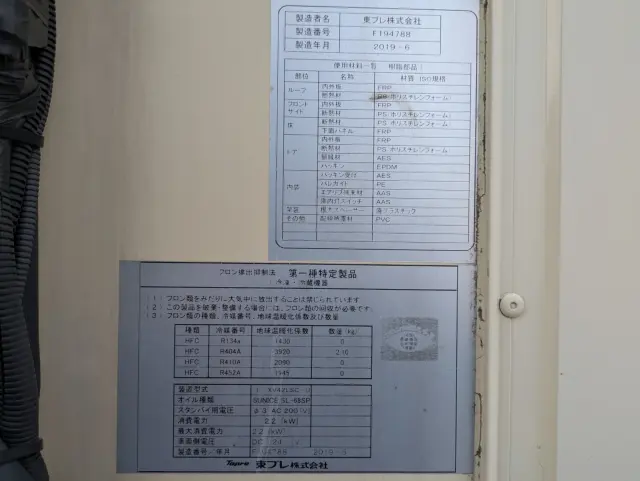 製造者名 東プレ株式会社
製造番号 F194788
製造年月 2019-6
使用材料一覧 樹脂部品
部位 名称 材質 ISO規格
ルーフ 内外板 FRP
断熱材 PS(ポリスチレンフォーム)
フロント 内外板 FRP
サイド 断熱材 PS(ポリスチレンフォーム)
床 断熱材 PS(ポリスチレンフォーム)
下面パネル FRP
ドア 内外板 FRP
断熱材 PS(ポリスチレンフォーム)
AES
パッキン EPDM
内装 パッキン受け AES
PE
AAS
庫内灯スイッチ AAS
その他 PVC
フロン排出抑制法 第一種特定製品
冷凍・冷蔵機器
(1)フロン類をみだりに大気中に放出することは禁じられています。
(2)この製品を廃棄・整備する場合には、フロン類の回収が必要です。
(3)フロン類の種類、冷媒番号、地球温暖化係数及び数量
種類 冷媒番号 地球温暖化係数 数量(kg)
HFC R134a 1430 0
HFC R404A 3920 2.10
HFC R410A 2090 0
HFC R452A 1945 0
製造型式
オイル種類 SUNICE SL-68SP
スタンバイ用電圧 φ3 AC 200 (V)
消費電力 2.2 (kW)
最大消費電力 2.2 (kW)
車両側電圧 DC 24
製造番号/年月 F194788 2019-
Topre 東プレ株式会社